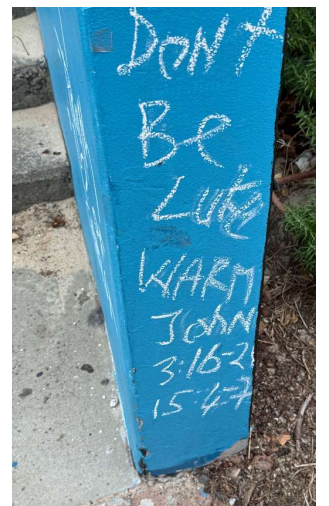 DONT
Be
Luke
WARM
JOHN
3:16-2
15:4-7